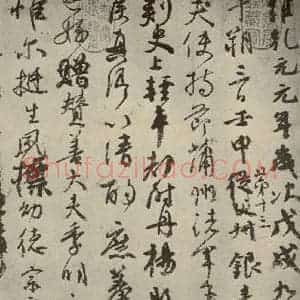 維乾元元年歲次戊戌九
午朔三日壬申第十三從父叔銀青
夫使持節蒲州諸軍事
刺史上輕車都尉丹楊縣
侯真卿以清酌庶羞
亡姪贈贊善大夫季明
惟爾挺生夙標幼德宗